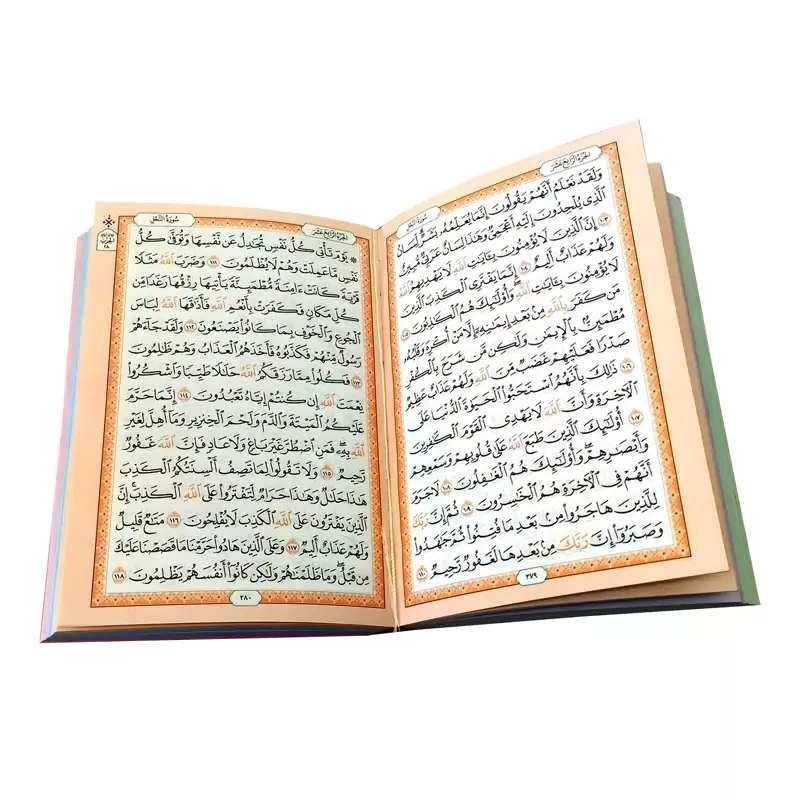 الجزء الرابع عشر
سورة النحل
وَلَقَدْ نَعْلَمُ أَنَّهُمْ يَقُولُونَ إِنَّمَا يُعَلِّمُهُۥ بَشَرٌ لِّسَانُ
ٱلَّذِى يُلْحِدُونَ إِلَيْهِ أَعْجَمِىٌّ وَهَٰذَا لِسَانٌ عَرَبِىٌّ مُّبِينٌ
١٠٣ إِنَّ ٱلَّذِينَ لَا يُؤْمِنُونَ بِـَٔايَٰتِ ٱللَّهِ لَا يَهْدِيهِمُ ٱللَّهُ
وَلَهُمْ عَذَابٌ أَلِيمٌ ١٠٤ إِنَّمَا يَفْتَرِى ٱلْكَذِبَ ٱلَّذِينَ
لَا يُؤْمِنُونَ بِـَٔايَٰتِ ٱللَّهِ وَأُو۟لَٰٓئِكَ هُمُ ٱلْكَٰذِبُونَ ١٠٥
مَن كَفَرَ بِٱللَّهِ مِنۢ بَعْدِ إِيمَٰنِهِۦٓ إِلَّا مَنْ أُكْرِهَ وَقَلْبُهُۥ
مُطْمَئِنٌّۢ بِٱلْإِيمَٰنِ وَلَٰكِن مَّن شَرَحَ بِٱلْكُفْرِ
صَدْرًا فَعَلَيْهِمْ غَضَبٌ مِّنَ ٱللَّهِ وَلَهُمْ عَذَابٌ عَظِيمٌ
١٠٦ ذَٰلِكَ بِأَنَّهُمُ ٱسْتَحَبُّوا۟ ٱلْحَيَوٰةَ ٱلدُّنْيَا عَلَى
ٱلْءَاخِرَةِ وَأَنَّ ٱللَّهَ لَا يَهْدِى ٱلْقَوْمَ ٱلْكَٰفِرِينَ
١٠٧ أُو۟لَٰٓئِكَ ٱلَّذِينَ طَبَعَ ٱللَّهُ عَلَىٰ قُلُوبِهِمْ وَسَمْعِهِمْ
وَأَبْصَٰرِهِمْ وَأُو۟لَٰٓئِكَ هُمُ ٱلْغَٰفِلُونَ ١٠٨ لَا جَرَمَ
أَنَّهُمْ فِى ٱلْءَاخِرَةِ هُمُ ٱلْخَٰسِرُونَ ١٠٩ ثُمَّ إِنَّ رَبَّكَ
لِلَّذِينَ هَاجَرُوا۟ مِنۢ بَعْدِ مَا فُتِنُوا۟ ثُمَّ جَٰهَدُوا۟
وَصَبَرُوٓا۟ إِنَّ رَبَّكَ مِنۢ بَعْدِهَا لَغَفُورٌ رَّحِيمٌ ١١٠
٢٧٩
الجزء الرابع عشر
سورة النحل
۞ يَوْمَ تَأْتِى كُلُّ نَفْسٍ تُجَٰدِلُ عَن نَّفْسِهَا وَتُوَفَّىٰ كُلُّ
نَفْسٍ مَّا عَمِلَتْ وَهُمْ لَا يُظْلَمُونَ ١١١ وَضَرَبَ ٱللَّهُ مَثَلًا
قَرْيَةً كَانَتْ ءَامِنَةً مُّطْمَئِنَّةً يَأْتِيهَا رِزْقُهَا رَغَدًا مِّن
كُلِّ مَكَانٍ فَكَفَرَتْ بِأَنْعُمِ ٱللَّهِ فَأَذَٰقَهَا ٱللَّهُ لِبَاسَ
ٱلْجُوعِ وَٱلْخَوْفِ بِمَا كَانُوا۟ يَصْنَعُونَ ١١٢ وَلَقَدْ جَآءَهُمْ
رَسُولٌ مِّنْهُمْ فَكَذَّبُوهُ فَأَخَذَهُمُ ٱلْعَذَابُ وَهُمْ ظَٰلِمُونَ
١١٣ فَكُلُوا۟ مِمَّا رَزَقَكُمُ ٱللَّهُ حَلَٰلًا طَيِّبًا وَٱشْكُرُوا۟
نِعْمَتَ ٱللَّهِ إِن كُنتُمْ إِيَّاهُ تَعْبُدُونَ ١١٤ إِنَّمَا حَرَّمَ
عَلَيْكُمُ ٱلْمَيْتَةَ وَٱلدَّمَ وَلَحْمَ ٱلْخِنزِيرِ وَمَآ أُهِلَّ لِغَيْرِ
ٱللَّهِ بِهِۦ فَمَنِ ٱضْطُرَّ غَيْرَ بَاغٍ وَلَا عَادٍ فَإِنَّ ٱللَّهَ غَفُورٌ
رَّحِيمٌ ١١٥ وَلَا تَقُولُوا۟ لِمَا تَصِفُ أَلْسِنَتُكُمُ ٱلْكَذِبَ
هَٰذَا حَلَٰلٌ وَهَٰذَا حَرَامٌ لِّتَفْتَرُوا۟ عَلَى ٱللَّهِ ٱلْكَذِبَ إِنَّ
ٱلَّذِينَ يَفْتَرُونَ عَلَى ٱللَّهِ ٱلْكَذِبَ لَا يُفْلِحُونَ ١١٦ مَتَٰعٌ قَلِيلٌ
وَلَهُمْ عَذَابٌ أَلِيمٌ ١١٧ وَعَلَى ٱلَّذِينَ هَادُوا۟ حَرَّمْنَا مَا قَصَصْنَا عَلَيْكَ
مِن قَبْلُ وَمَا ظَلَمْنَٰهُمْ وَلَٰكِن كَانُوٓا۟ أَنفُسَهُمْ يَظْلِمُونَ ١١٨
٢٨٠
الحزب
٢٨